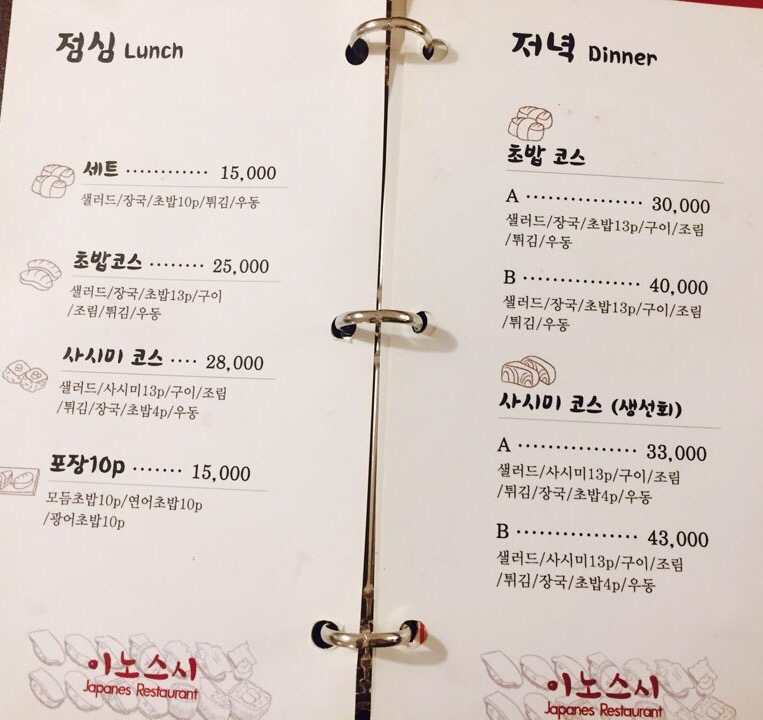 점심 Lunch
세트 ············ 15,000
샐러드/장국/초밥10p/튀김/우동
초밥코스 ········ 25,000
샐러드/장국/초밥13p/구이
/조림/튀김/우동
사시미 코스 ···· 28,000
샐러드/사시미13p/구이/조림
/튀김/장국/초밥4p/우동
포장10p ······· 15,000
모듬초밥10p/연어초밥10p
/광어초밥10p
이노스시
Japanes Restaurant
저녁 Dinner
초밥 코스
A ················ 30,000
샐러드/장국/초밥13p/구이/조림
/튀김/우동
B ················ 40,000
샐러드/장국/초밥13p/구이/조림
/튀김/우동
사시미 코스 (생선회)
A ················ 33,000
샐러드/사시미13p/구이/조림
/튀김/장국/초밥4p/우동
B ················ 43,000
샐러드/사시미13p/구이/조림
/튀김/장국/초밥4p/우동
이노스시
Japanes Restaurant